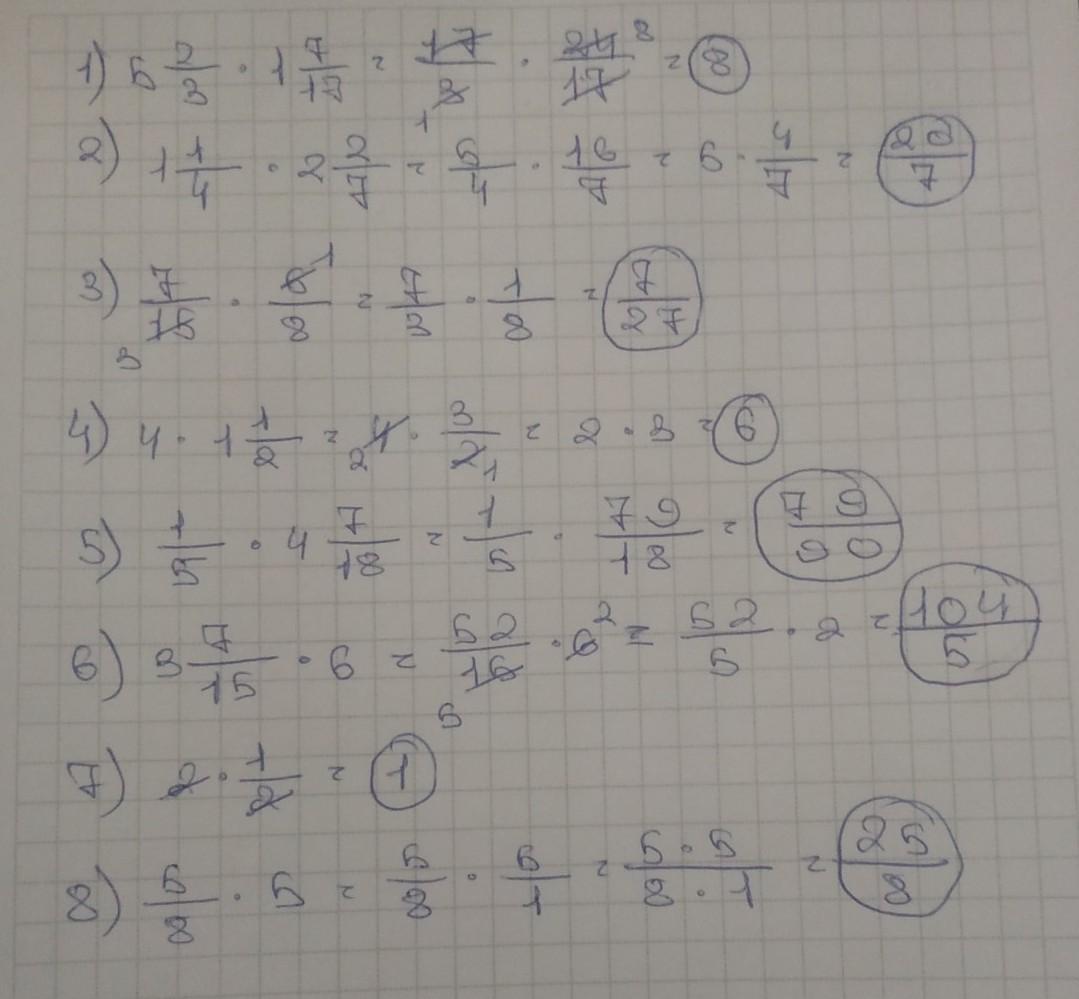 1) 5 2/3 · 1 7/17 = 17/3 1 · 24/17 8 = 8
2) 1 1/4 · 2 2/7 = 5/4 · 16/7 = 5 · 4/7 = 20/7
3) 7/15 3 · 5/9 1 = 7/3 · 1/9 = 7/27
4) 4 · 1 1/2 = 2 4 · 3/2 1 = 2 · 3 = 6
5) 1/5 · 4 7/18 = 1/5 · 79/18 = 79/90
6) 3 7/15 · 6 = 52/15 5 · 6 2 = 52/5 · 2 = 104/5
7) 2 · 1/2 = 1
8) 5/8 · 5 = 5/8 · 5/1 = 5 · 5/8 · 1 = 25/8